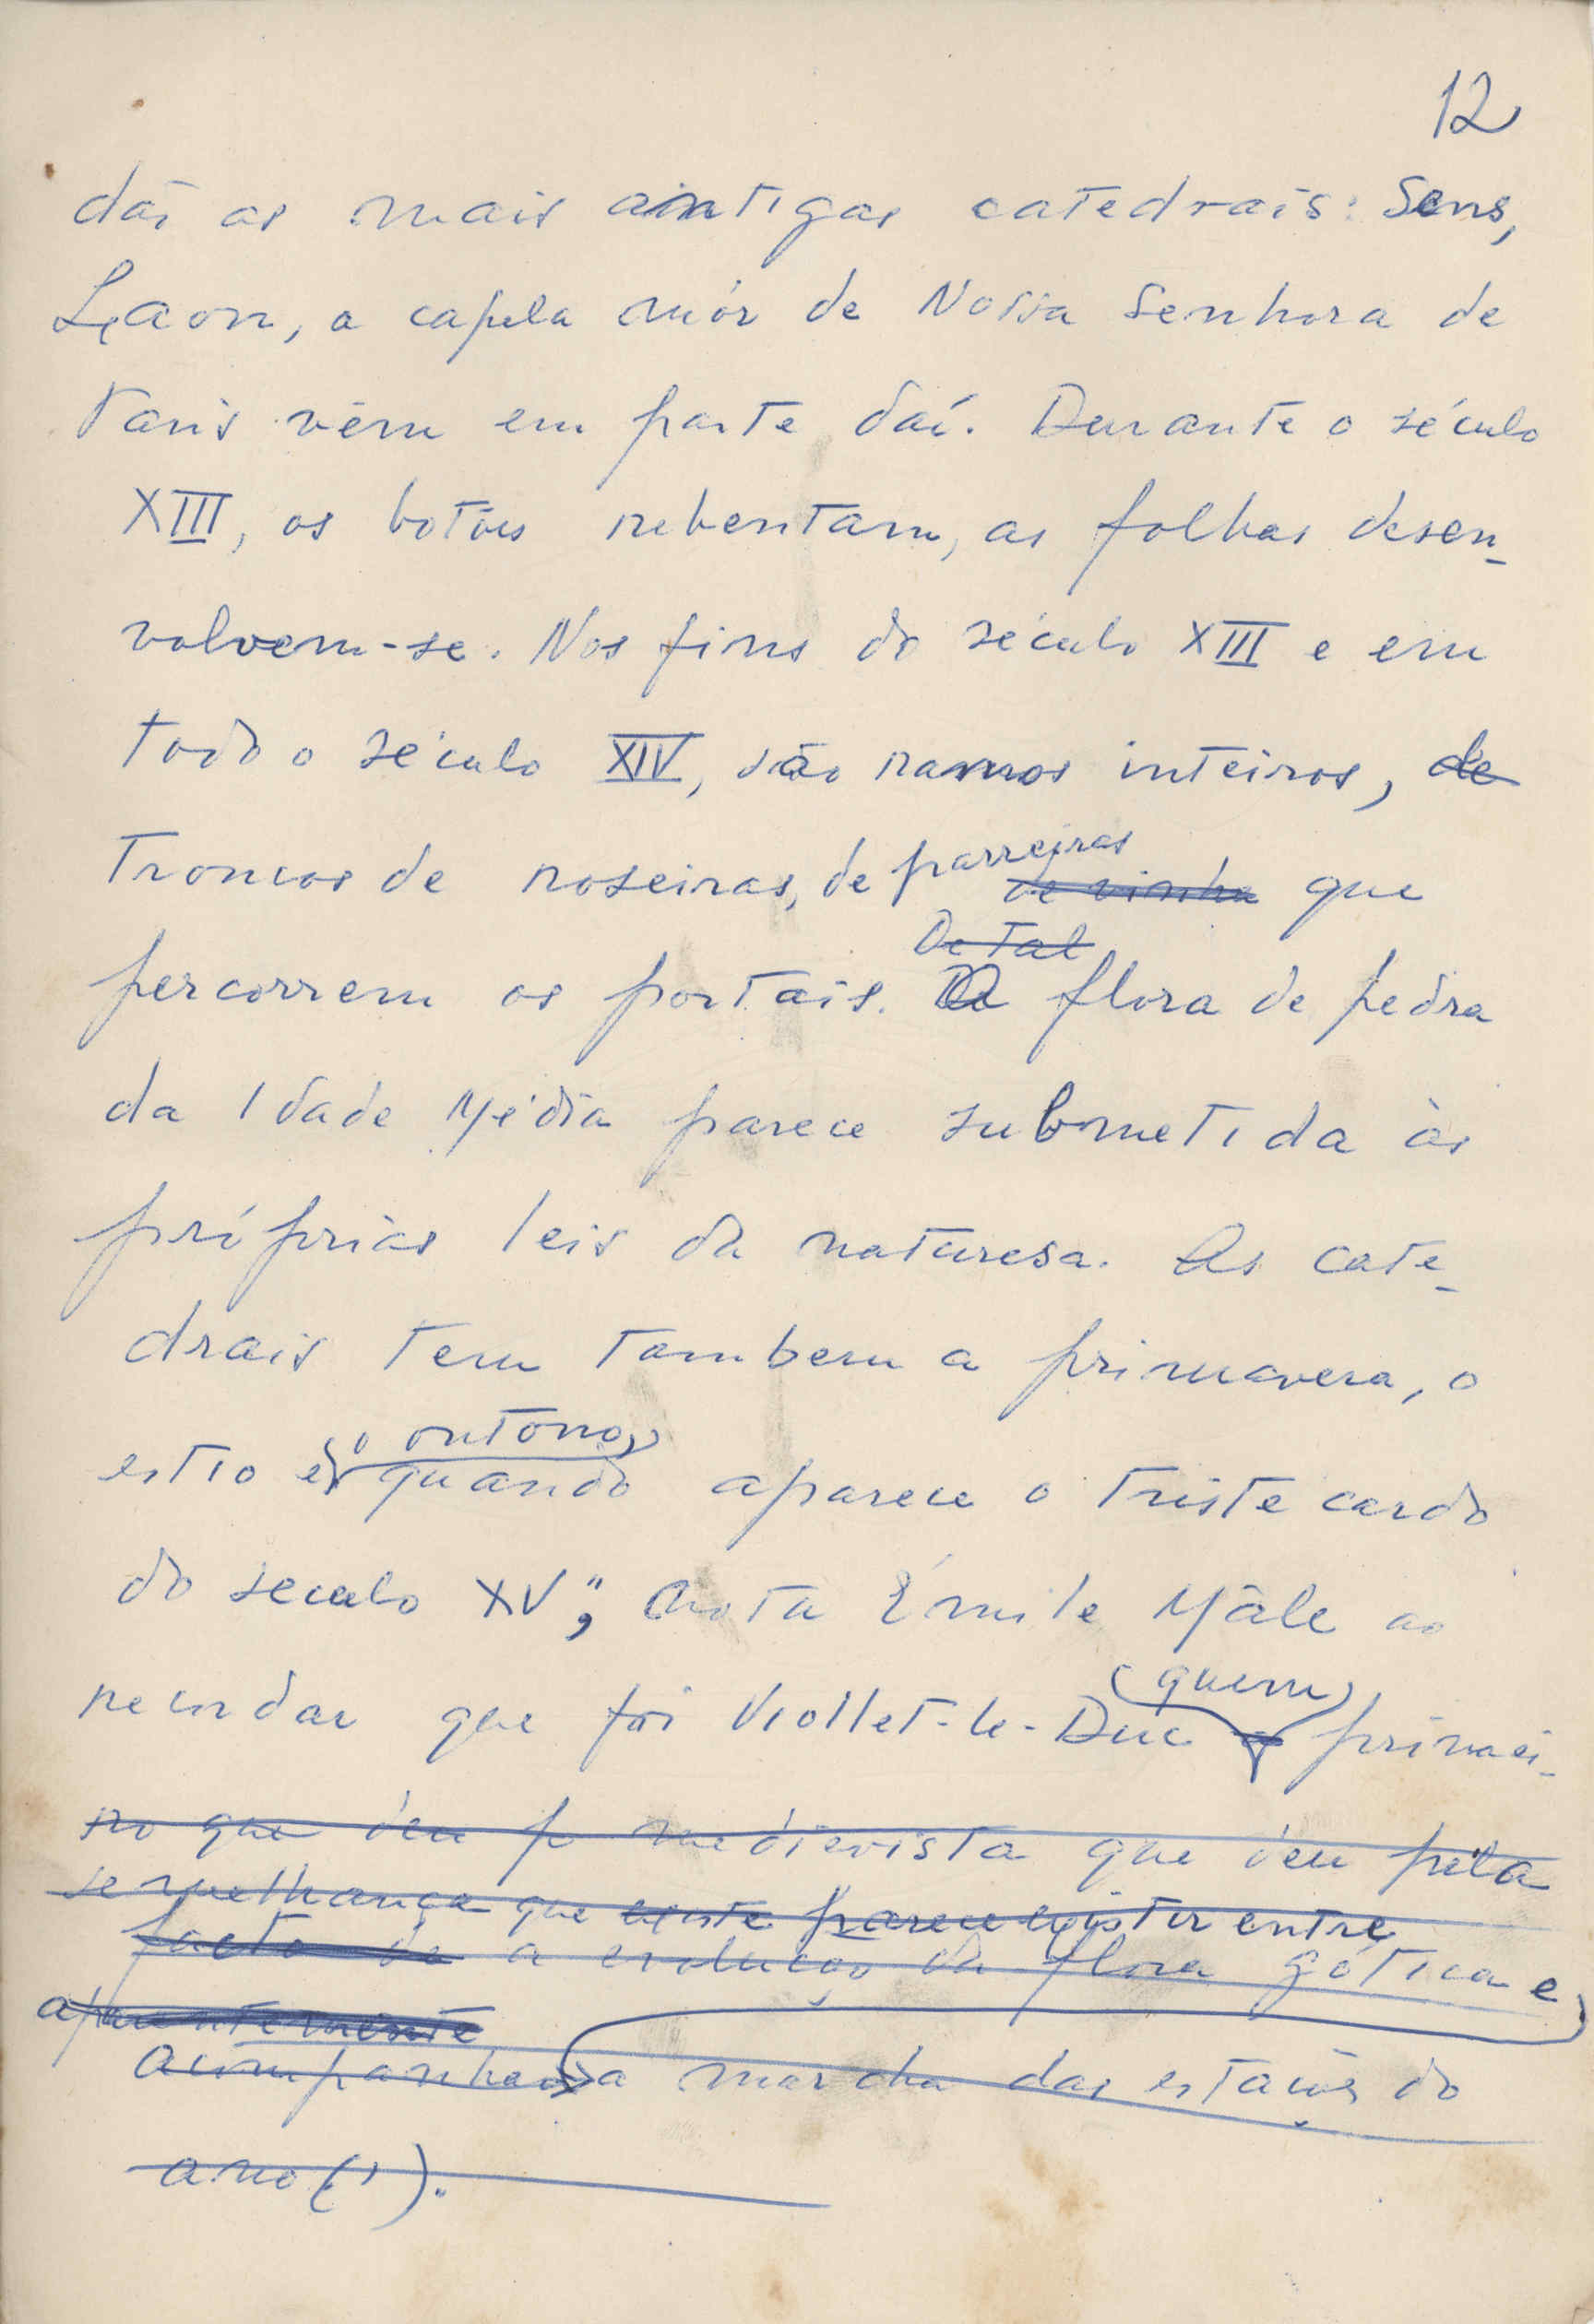 12
dás as mais antigas catedrais: Sens,
Laon, a capela mór de Nossa Senhora de
Paris vêm em parte daí. Durante o século
XIII, os botões rebentam, as folhas desen-
volvem-se. Nos fins do século XIII e em
todo o século XIV, são ramos inteiros, de
troncos de roseiras, de parreiras de vinha que
De tal
percorrem os portais. A flora de pedra
da Idade Média parece submetida às
próprias leis da naturesa. As cate-
drais tem tambem a primavera, o
o outono,
estio e quando aparece o triste cardo
do seculo XV", nota Émile Mâle ao
quem
recordar que foi Viollet-le-Duc o primei-
ro que deu p medievista que deu pela
semelhança que existe parece existir entre
facto de a evolução da flora gótica e
aparentemente
acompanhar a marcha das estações do
ano (1).